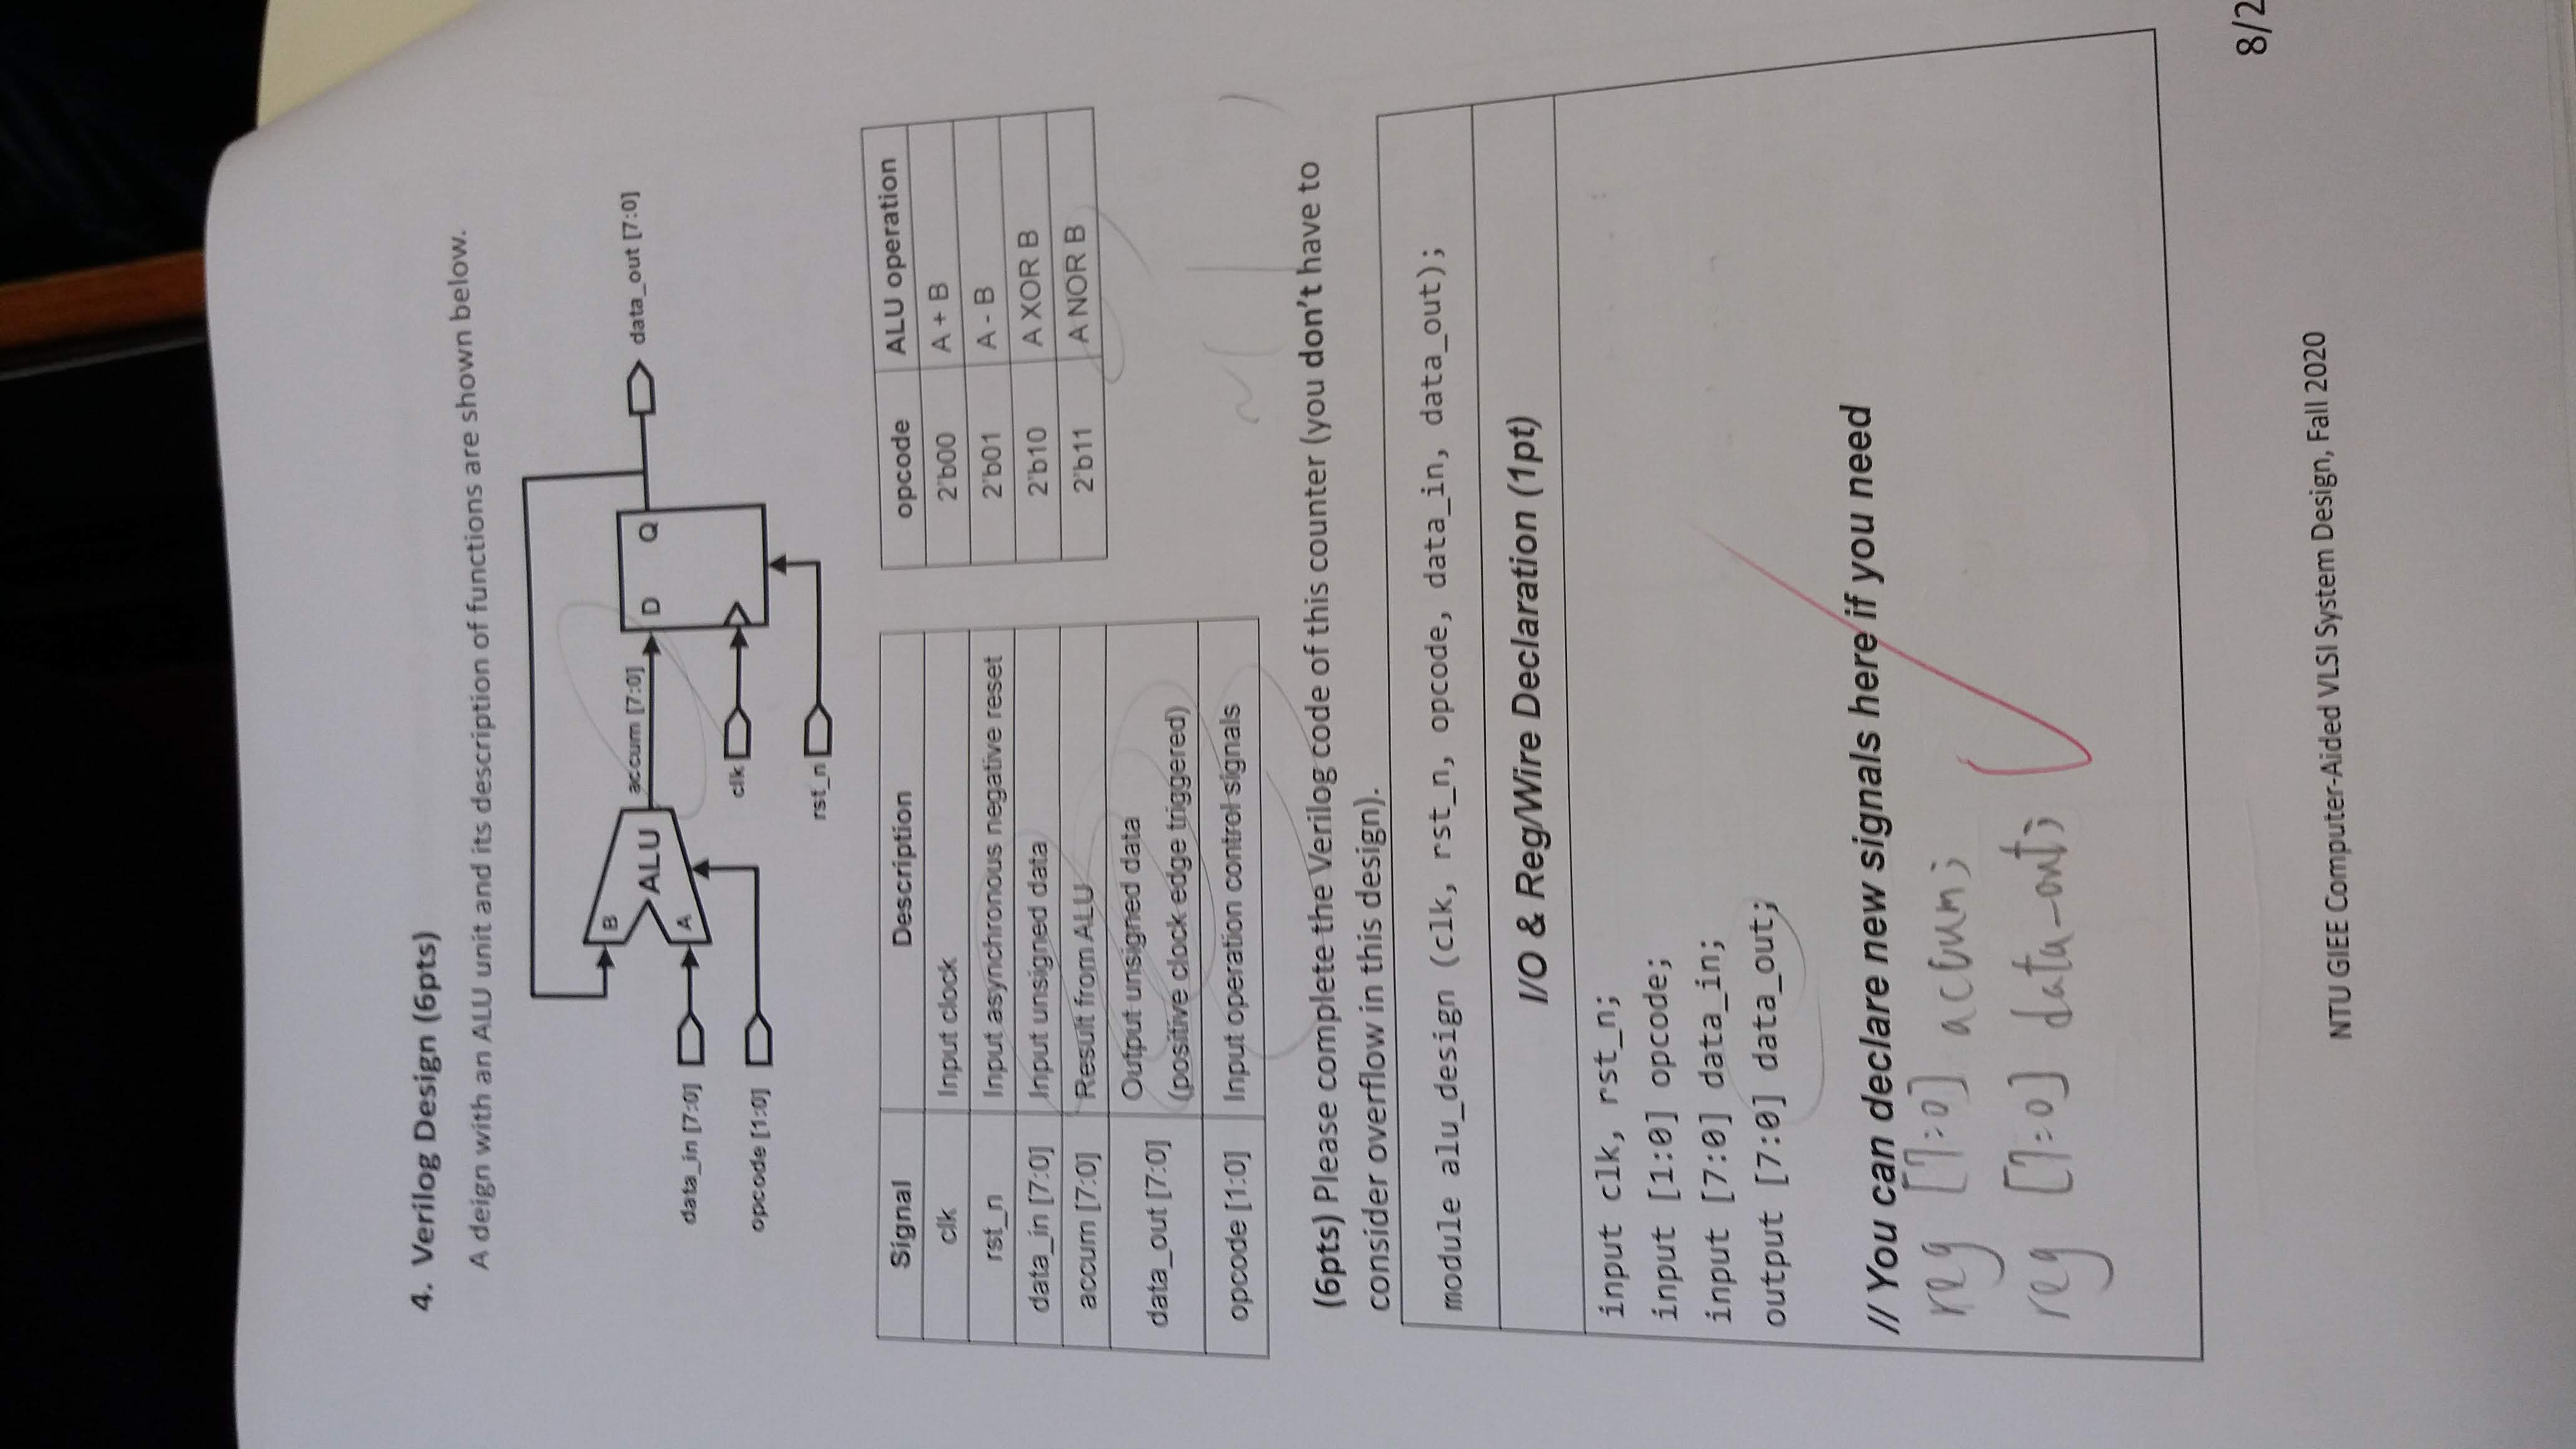 4. Verilog Design (6pts)
A deign with an ALU unit and its description of functions are shown below.
B
ALU
A
accum [7:0]
D
Q
data_out [7:0]
data_in [7:0]
opcode [1:0]
clk
rst_n
Signal Description
clk Input clock
rst_n Input asynchronous negative reset
data_in [7:0] Input unsigned data
accum [7:0] Result from ALU
data_out [7:0] Output unsigned data
(positive clock edge triggered)
opcode [1:0] Input operation control signals
opcode ALU operation
2'b00 A + B
2'b01 A - B
2'b10 A XOR B
2'b11 A NOR B
~( | )
(6pts) Please complete the Verilog code of this counter (you don't have to
consider overflow in this design).
module alu_design (clk, rst_n, opcode, data_in, data_out);
I/O & Reg/Wire Declaration (1pt)
input clk, rst_n;
input [1:0] opcode;
input [7:0] data_in;
output [7:0] data_out;
// You can declare new signals here if you need
reg [7:0] accum;
reg [7:0] data_out;
8/2
NTU GIEE Computer-Aided VLSI System Design, Fall 2020